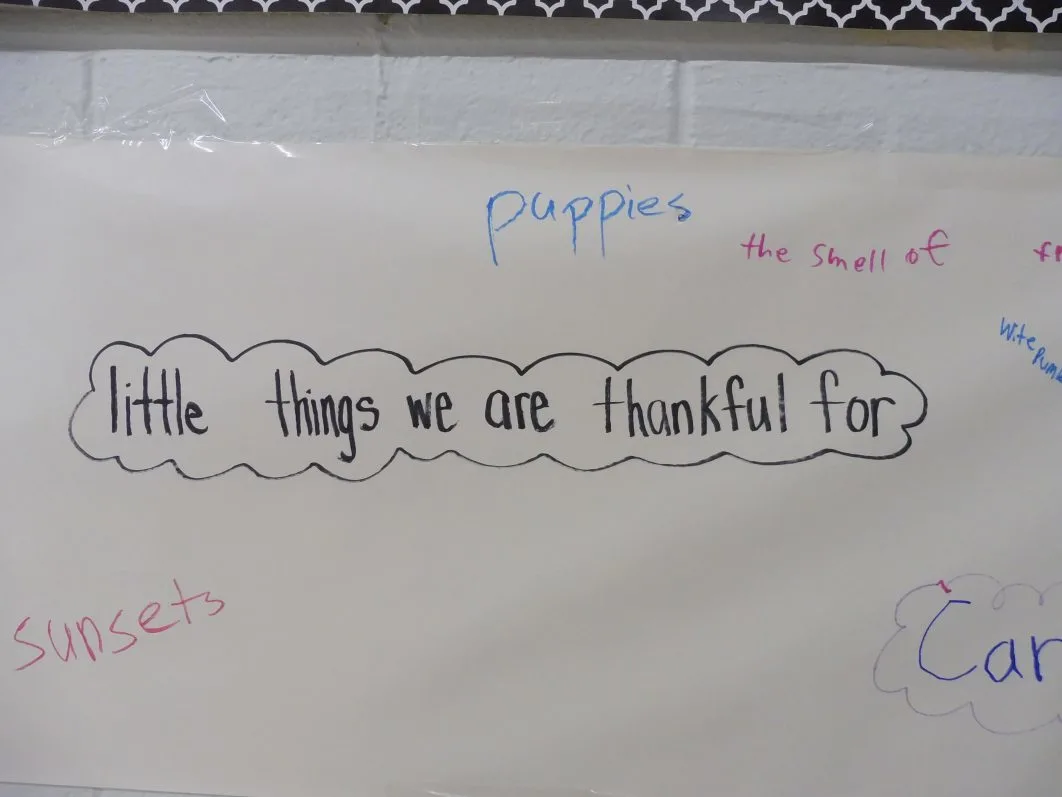 puppies
the smell of
little things we are thankful for
sunsets